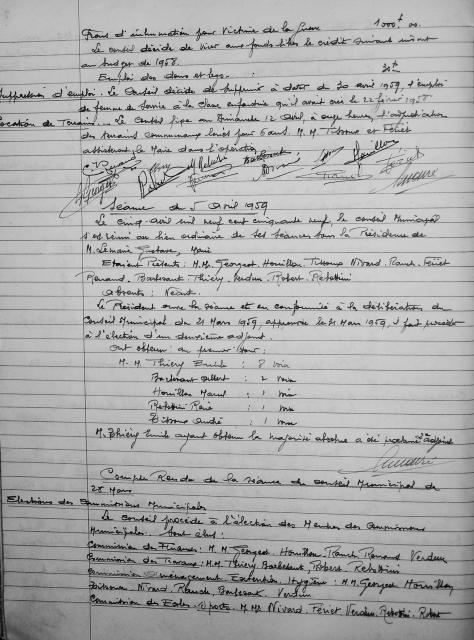 Frais d'inhumation pour Victime de la Guerre 1000f 00.
Le conseil décide de virer aux fonds libres le crédit suivant inscrit
au budget de 1958.
Emploi des dons et legs. : 30f
Suppression d'emploi. Le Conseil décide de supprimer à dater du 30 avril 1959, l'emploi
de femme de service à la classe enfantine qu'il avait créé le 22 février 1958
Location de Terrain. Le Conseil fixe au Dimanche 12 Avril, à onze heures, l'adjudication
des terrains communaux loués pour 6 ans. M. M. et Fériet
assisteront le Maire dans l'opération
Séance du 5 Avril 1959
Le cinq avril mil neuf cent cinquante neuf, le conseil Municipal
s'est réuni au lieu ordinaire de ses séances sous la Présidence de
M. Lemaire Gustave, Maire
Etaient Présents : M.M. Georgeot. Houillon. Nivard. Rauch. Fériet
Renard. Barbesant. Thiéry. Verdun. Robert. Rebattini
absents : Néant.
Le Président ouvre la séance et en conformité à la délibération du
Conseil Municipal du 21 Mars 1959, approuvée le 31 Mars 1959, il fait procéder
à l'élection d'un deuxième adjoint.
Ont obtenu au premier tour :
M. M. Thiéry Emile : 8 voix
Barbesant Albert : 2 voix
Houillon Marcel : 1 voix
Rebattini René : 1 voix
André : 1 voix
M. Thiéry Emile ayant obtenu la majorité absolue a été proclamé 2e adjoint
Compte Rendu de la séance du Conseil Municipal du
28 Mars
Elections des Commissions Municipales
Le conseil procède à l'élection des Membres des Commissions
Municipales. Sont élus :
Commission des Finances : M. M. Georgeot. Houillon. Rauch. Renard. Verdun
Commission des Travaux : M.M. Thiéry. Barbesant. Robert. Rebattini
Commission Aménagement. Extention. Hygiène : M.M. Georgeot Houillon
Nivard. Rauch. Barbesant. Verdun
Commission des Ecoles, Sports. M. M. Nivard. Fériet. Verdun. Rebattini. Robert